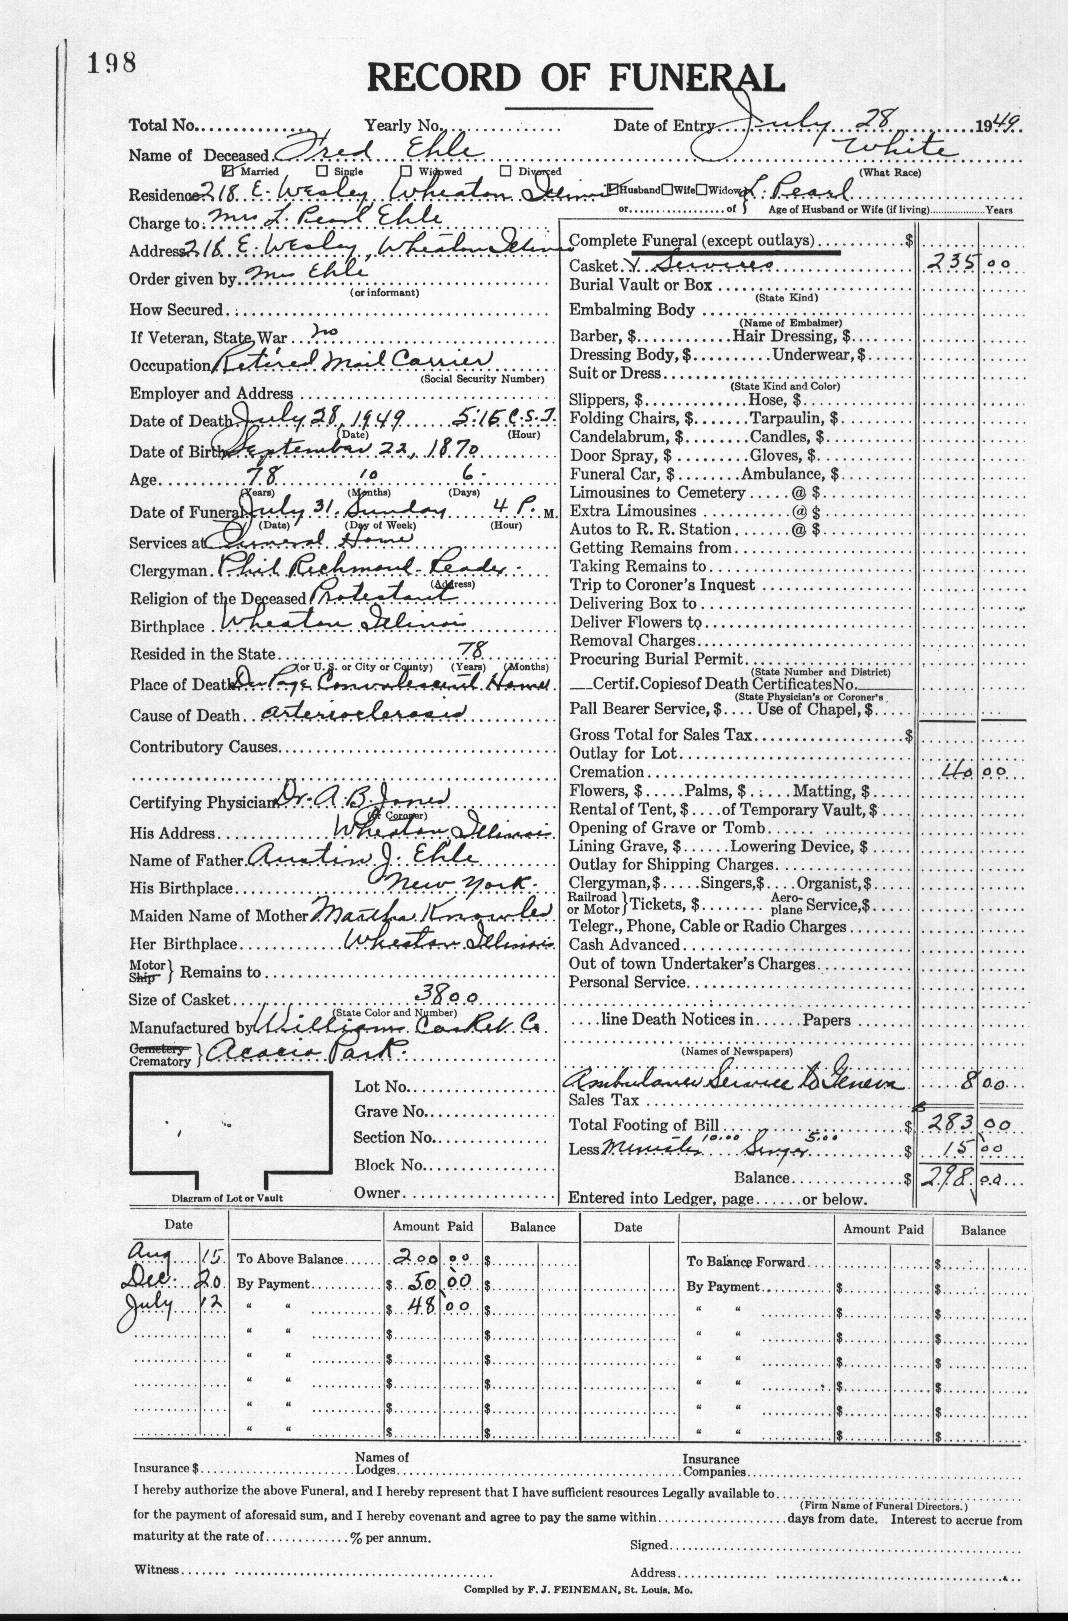 198
RECORD OF FUNERAL
Total No. Yearly No. Date of Entry July 28 1949
Name of Deceased Fred Ehle White
Married Single Widowed Divorced (What Race)
Residence 218 E. Wesley Wheaton Illinois Husband Wife Widow L. Pearl
or of } Age of Husband or Wife (if living) Years
Charge to: Mrs L. Pearl Ehle
Address 218 E. Wesley, Wheaton Illinois
Order given by Mrs Ehle
(or informant)
How Secured
If Veteran, State War no
Occupation Retired Mail Carrier
(Social Security Number)
Employer and Address
Date of Death July 28, 1949 5:15 C.S.T.
(Date) (Hour)
Date of Birth September 22, 1870
Age 78 10 6
(Years) (Months) (Days)
Date of Funeral July 31. Sunday 4 P. M.
(Date) (Day of Week) (Hour)
Services at Funeral Home
Clergyman Phil Richmond Reader
(Address)
Religion of the Deceased Protestant
Birthplace Wheaton Illinois
Resided in the State 78
(or U. S. or City or County) (Years) (Months)
Place of Death Du Page Convalescent Home
Cause of Death arteriosclerosis
Contributory Causes
Certifying Physician Dr. A. B. Jones
(or Coroner)
His Address Wheaton, Illinois
Name of Father Austin J. Ehle
His Birthplace New York
Maiden Name of Mother Martha Knowles
Her Birthplace Wheaton Illinois
Motor
Ship } Remains to
Size of Casket 3800
(State Color and Number)
Manufactured by Williams Casket Co
Cemetery
Crematory } Acacia Park.
Lot No.
Grave No.
Section No.
Block No.
Owner
Diagram of Lot or Vault
Complete Funeral (except outlays) $
Casket & Services 235 00
Burial Vault or Box
(State Kind)
Embalming Body
(Name of Embalmer)
Barber, $ Hair Dressing, $
Dressing Body, $ Underwear, $
Suit or Dress
(State Kind and Color)
Slippers, $ Hose, $
Folding Chairs, $ Tarpaulin, $
Candelabrum, $ Candles, $
Door Spray, $ Gloves, $
Funeral Car, $ Ambulance, $
Limousines to Cemetery @ $
Extra Limousines @ $
Autos to R. R. Station @ $
Getting Remains from
Taking Remains to
Trip to Coroner's Inquest
Delivering Box to
Deliver Flowers to
Removal Charges
Procuring Burial Permit
(State Number and District)
Certif. Copies of Death Certificates No.
(State Physician's or Coroner's
Pall Bearer Service, $ Use of Chapel, $
Gross Total for Sales Tax $
Outlay for Lot
Cremation 40 00
Flowers, $ Palms, $ Matting, $
Rental of Tent, $ of Temporary Vault, $
Opening of Grave or Tomb
Lining Grave, $ Lowering Device, $
Outlay for Shipping Charges
Clergyman, $ Singers, $ Organist, $
Railroad
or Motor } Tickets, $ Aero-
plane Service, $
Telegr., Phone, Cable or Radio Charges
Cash Advanced
Out of town Undertaker's Charges
Personal Service
line Death Notices in Papers
(Names of Newspapers)
Ambulance Service to Geneva 8 00
Sales Tax
Total Footing of Bill $ 283 00
Less Minister 10.00 Singer 5.00 $ 15 00
Balance $ 298 00
Entered into Ledger, page or below.
Date Amount Paid Balance Date Amount Paid Balance
Aug 15 To Above Balance 200 00 $ To Balance Forward $
Dec. 20 By Payment $ 50 00 $ By Payment $ $
July 12 " " $ 48 00 $ " " $ $
" " $ $ " " $ $
" " $ $ " " $ $
" " $ $ " " $ $
" " $ $ " " $ $
" " $ $ " " $ $
Insurance $ Names of
Lodges Insurance
Companies
I hereby authorize the above Funeral, and I hereby represent that I have sufficient resources Legally available to
(Firm Name of Funeral Directors.)
for the payment of aforesaid sum, and I hereby covenant and agree to pay the same within days from date. Interest to accrue from
maturity at the rate of % per annum.
Signed
Witness Address
Compiled by F. J. FEINEMAN, St. Louis, Mo.